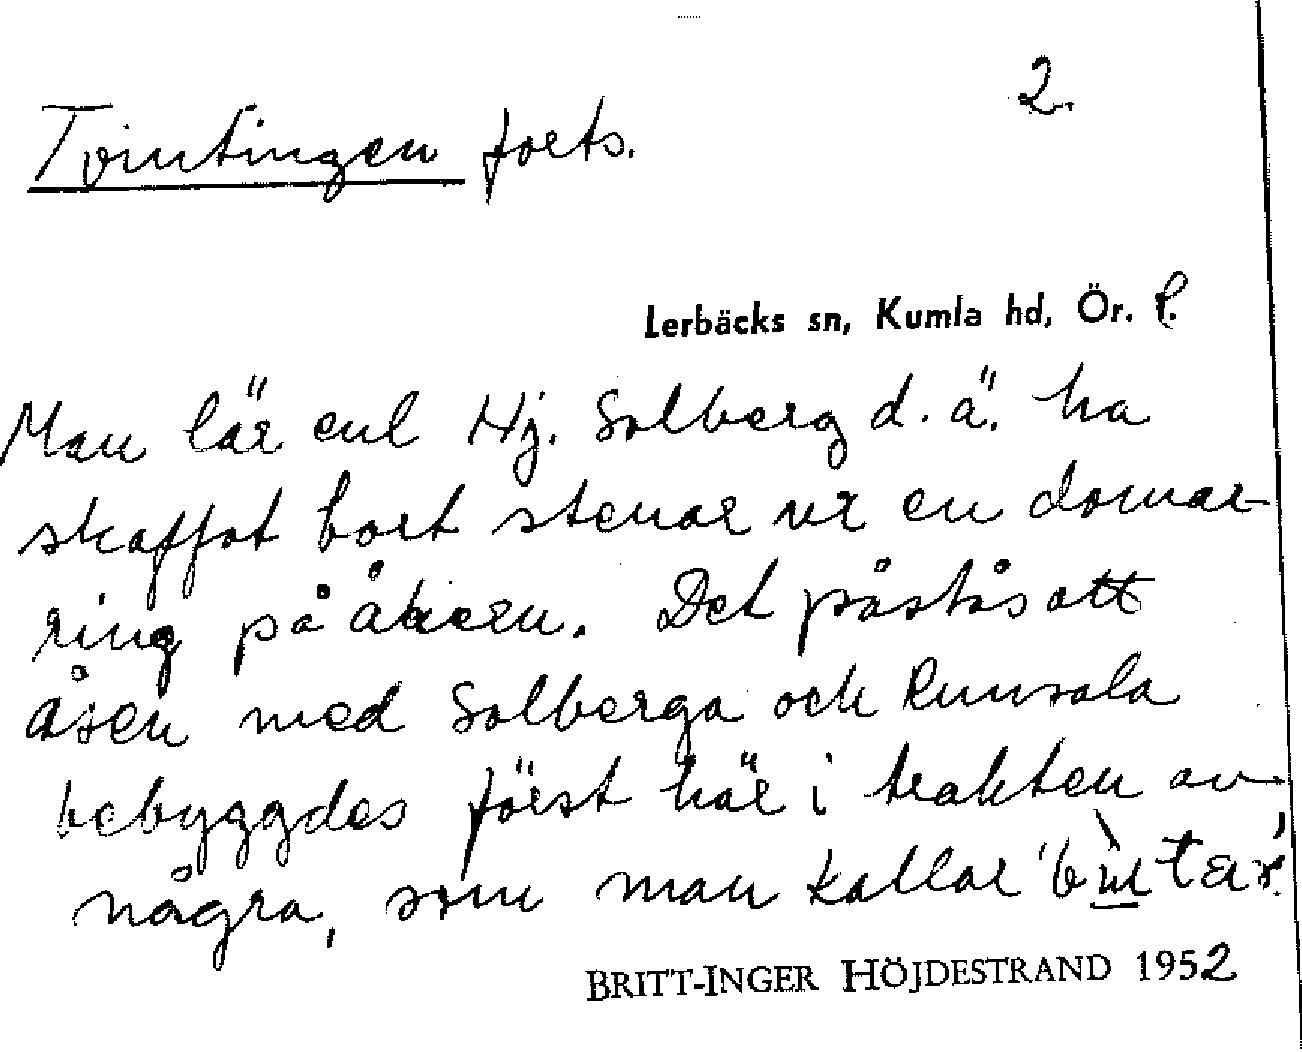 2.
Tvintingen forts.
Lerbäcks sn, Kumla hd, Ör. l.
Man lär enl Hj. Solberg d.ä. ha
skaffat bort stenar ur en domar-
ring på åkern. Det påstås att
åsen med Solberga och Runsala
bebyggdes först här i trakten av
några, som man kallar
BRITT-INGER HÖJDESTRAND 1952